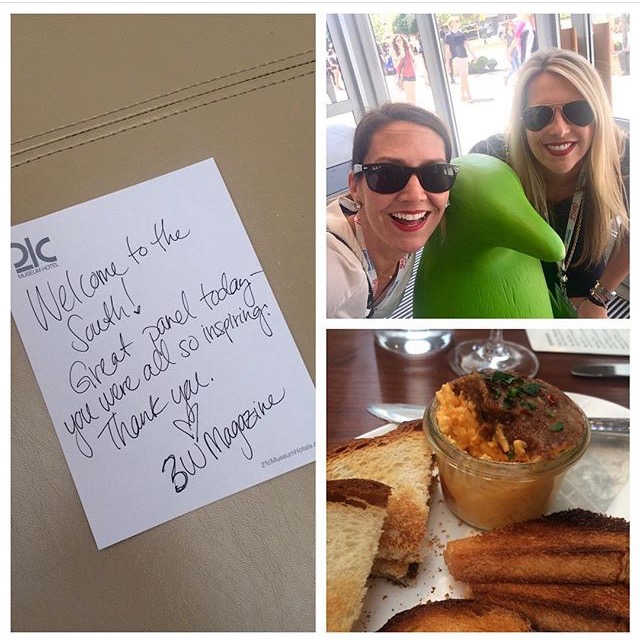 21c
MUSEUM HOTEL
Welcome to the
South!
Great panel today—
you were all so inspiring.
Thank you.
♡
3W Magazine
21cMuseumHotels.c